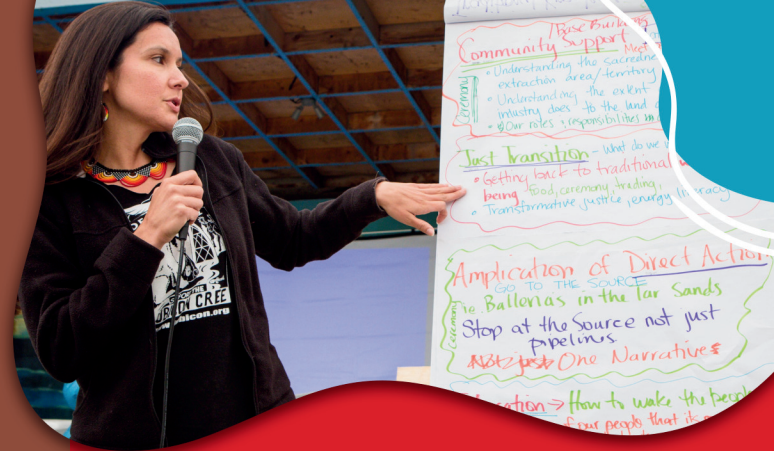 /Base Building
Community Support
Meet
Ceremony
• Understanding the sacredne
extraction area/territory
• Understanding the extent
industry does to the land
• Our roles & responsibilities in
Just Transition - What do we
• Getting back to traditional
being food, ceremony, trading,
• Transformative justice, energy literacy
Amplication of Direct Action
GO TO THE SOURCE
Ceremony
ie. Ballerias in the tar Sands
Stop at the Source not just
pipelines
Not just One Narratives
ation → How to wake the people
of our people that its
THE
CREE
bicon.org